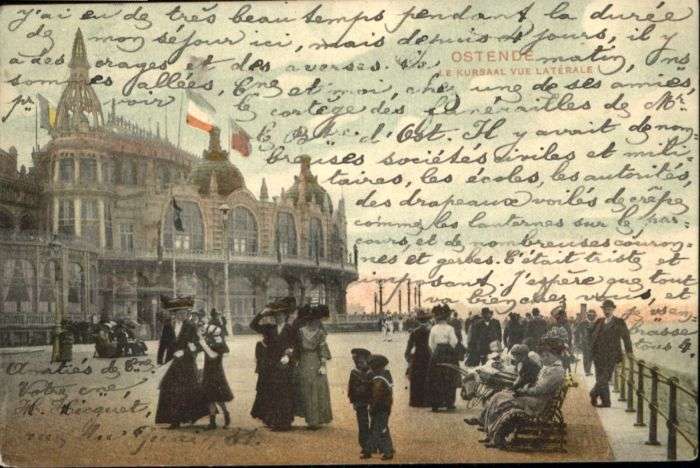 j'ai eu de très beau temps pendant la durée
de mon séjour ici, mais depuis 4 jours, il y
a des orages et des averses. Ve matin, ns
OSTENDE
LE KURSAAL VUE LATÉRALE
sommes allées, et moi, chez une de ses amies,
pr voir le cortège des funérailles de Mr
le d'Ost. Il y avait de nom
breuses sociétés civiles et mili
taires, les écoles, les autorités,
des drapeaux voilés de crêpe
comme les lanternes sur le par
cours, et de nombreuses couron
nes et gerbes. C'était triste et
imposant. J'espère que tout
va bien chez vous, et
vs em
brasse
tous 4
Amitiés de
Votre
M. Hicquet,